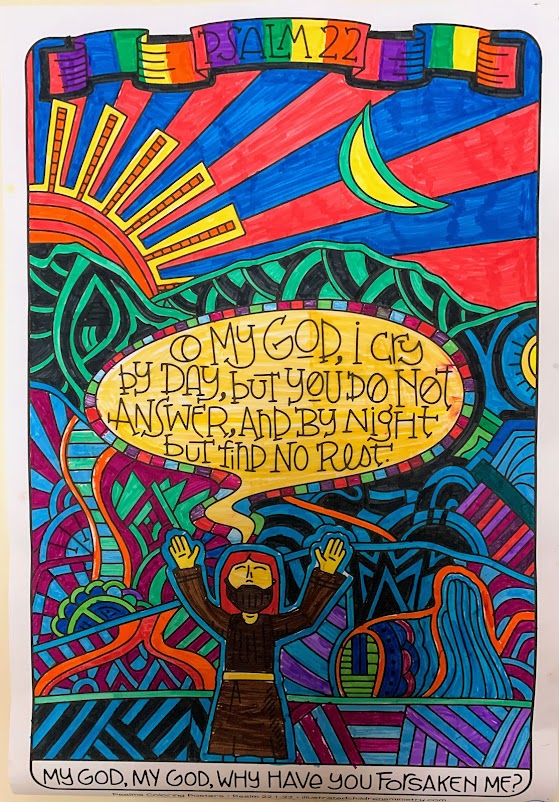 PSALM 22
O MY GOD, i CRY
by DAY, but you DO NOT
ANSWER, AND by Night
but find NO Rest.
MY GOD, MY GOD, WHY HAVE YOU FORSAKEN ME?
Psalms Coloring Posters • Psalm 22:1-22 • illustratedchildrensministry.com